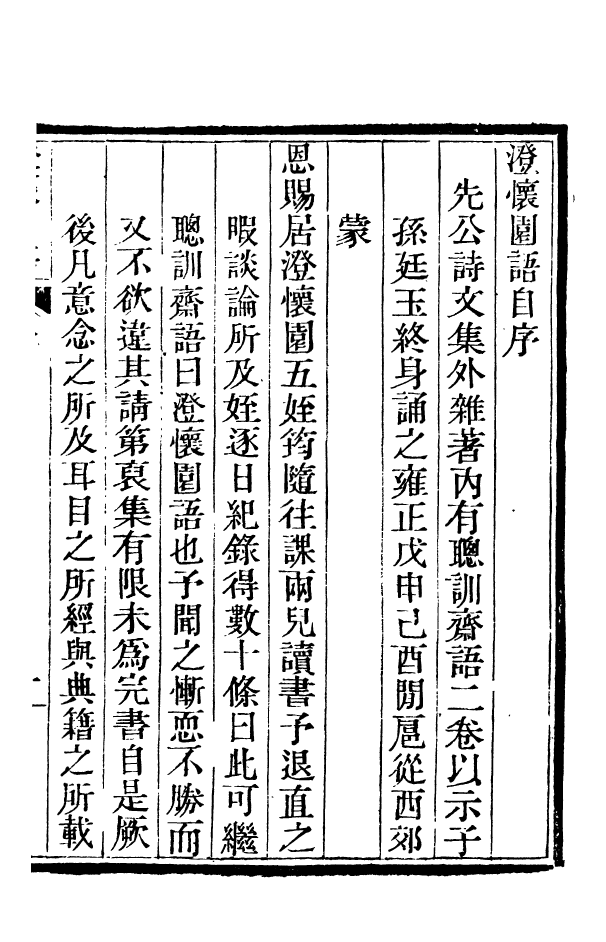 澄懷園語自序
先公詩文集外雜著內有聰訓齋語二卷以示子
孫廷玉終身誦之雍正戊申己酉閒扈從西郊
蒙
恩賜居澄懷園五姪筠隨往課兩兒讀書予退直之
暇談論所及姪逐日紀錄得數十條曰此可繼
聰訓齋語曰澄懷園語也予聞之慚恧不勝而
又不欲違其請第裒集有限未爲完書自是厥
後凡意念之所及耳目之所經與典籍之所載